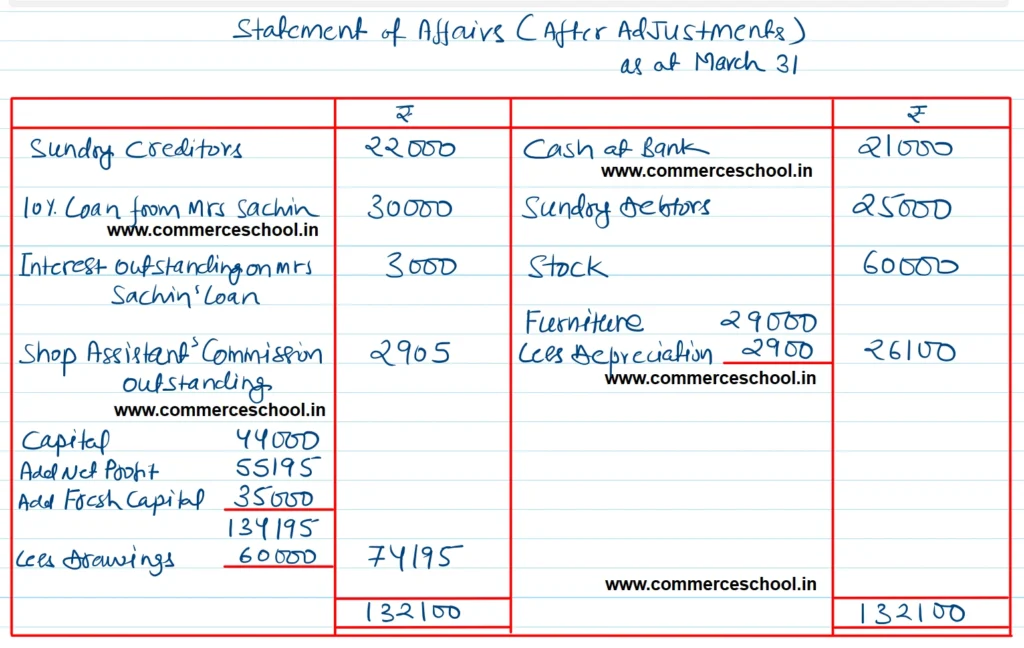 Statement of Affairs (After Adjustments)
as at March 31
₹ ₹
Sundry Creditors 22000 Cash at Bank 21000
www.commerceschool.in
10% Loan from Mrs Sachin 30000 Sundry Debtors 25000
www.commerceschool.in
Interest outstanding on Mrs 3000 Stock 60000
Sachin's Loan
Furniture 29000
Shop Assistant's Commission 2905 Less Depreciation 2900 26100
outstanding
www.commerceschool.in
www.commerceschool.in
Capital 44000
Add Net Profit 55195
Add Fresh Capital 35000
134195
Less Drawings 60000 74195
www.commerceschool.in
132100 132100